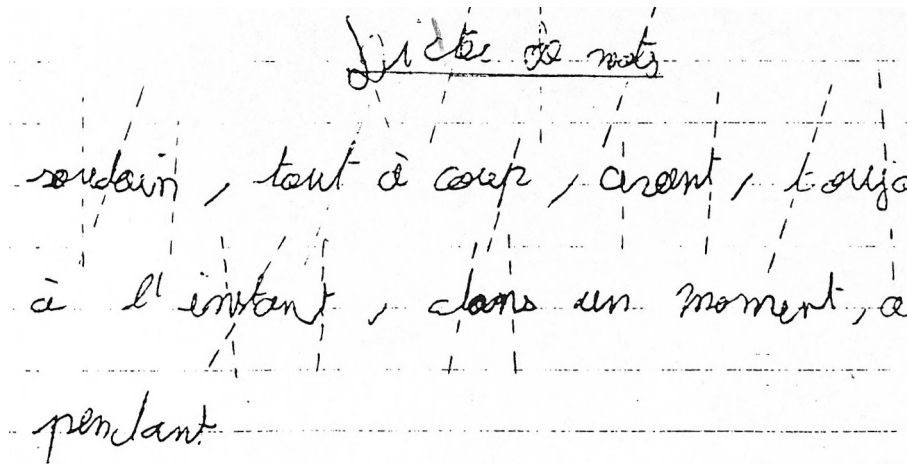 Dictée de mots
soudain, tout à coup, avant, toujo
à l'instant, dans un moment, a
pendant